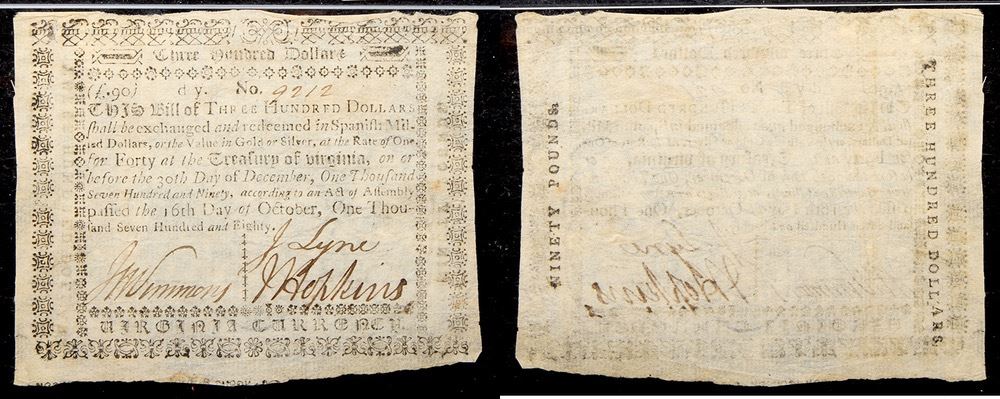 Three Hundred Dollars
(£.90) d y. No. 9212
THIS Bill of THREE HUNDRED DOLLARS
shall be exchanged and redeemed in Spanish Mil-
led Dollars, or the Value in Gold or Silver, at the Rate of One
for Forty at the Treasury of Virginia, on or
before the 30th Day of December, One Thousand
Seven Hundred and Ninety, according to an Act of Assembly
passed the 16th Day of October, One Thou-
sand Seven Hundred and Eighty.
J Lyne
Simmons J Hopkins
VIRGINIA CURRENCY.
NINETY POUNDS.
THREE HUNDRED DOLLARS.